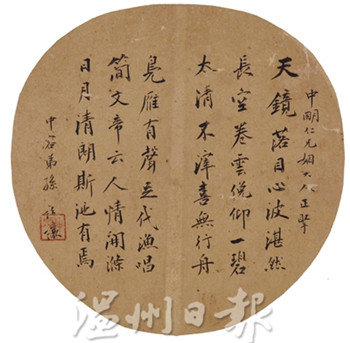 中朙仁兄姻大人正
天鏡落目心波湛然
長空卷雲俛仰一碧
太清不滓喜無行舟
鳧雁有聲足代漁唱
简文帝云人情開滌
日月清朗斯池有焉
中容弟孫詒讓
温州日報